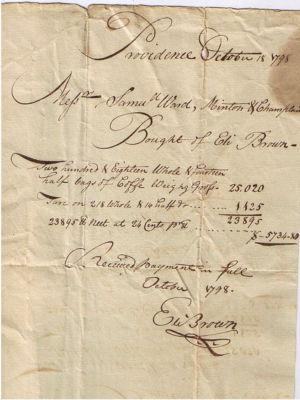 Providence October 18 1798
Messrs. Samuel Ward, Minton & Champlin
Bought of Eli Brown
Two hundred & Eighteen Whole & fourteen
half bags of Coffe Weighg Gross 25.020
Tare on 218 Whole & 14 half Do. 1125
23895
23895 lb Neet at 24 Cents pr lb $ 5734.80
Received payment in full
October 1798.
Eli Brown